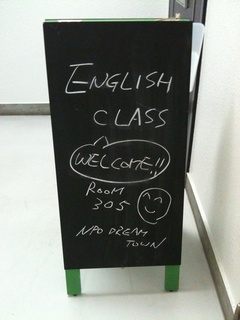 ENGLISH
CLASS
WELCOME!!
ROOM
305
NPO DREAM
TOWN